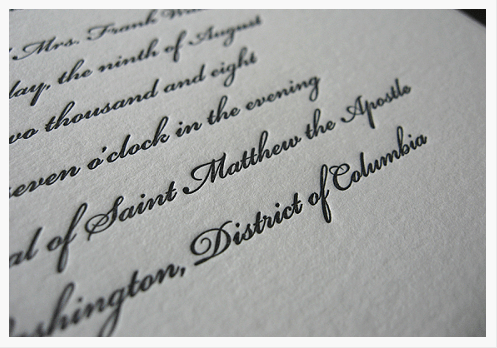 Mrs. Frank
the ninth of August
thousand and eight
seven o'clock in the evening
of Saint Matthew the Apostle
Washington, District of Columbia